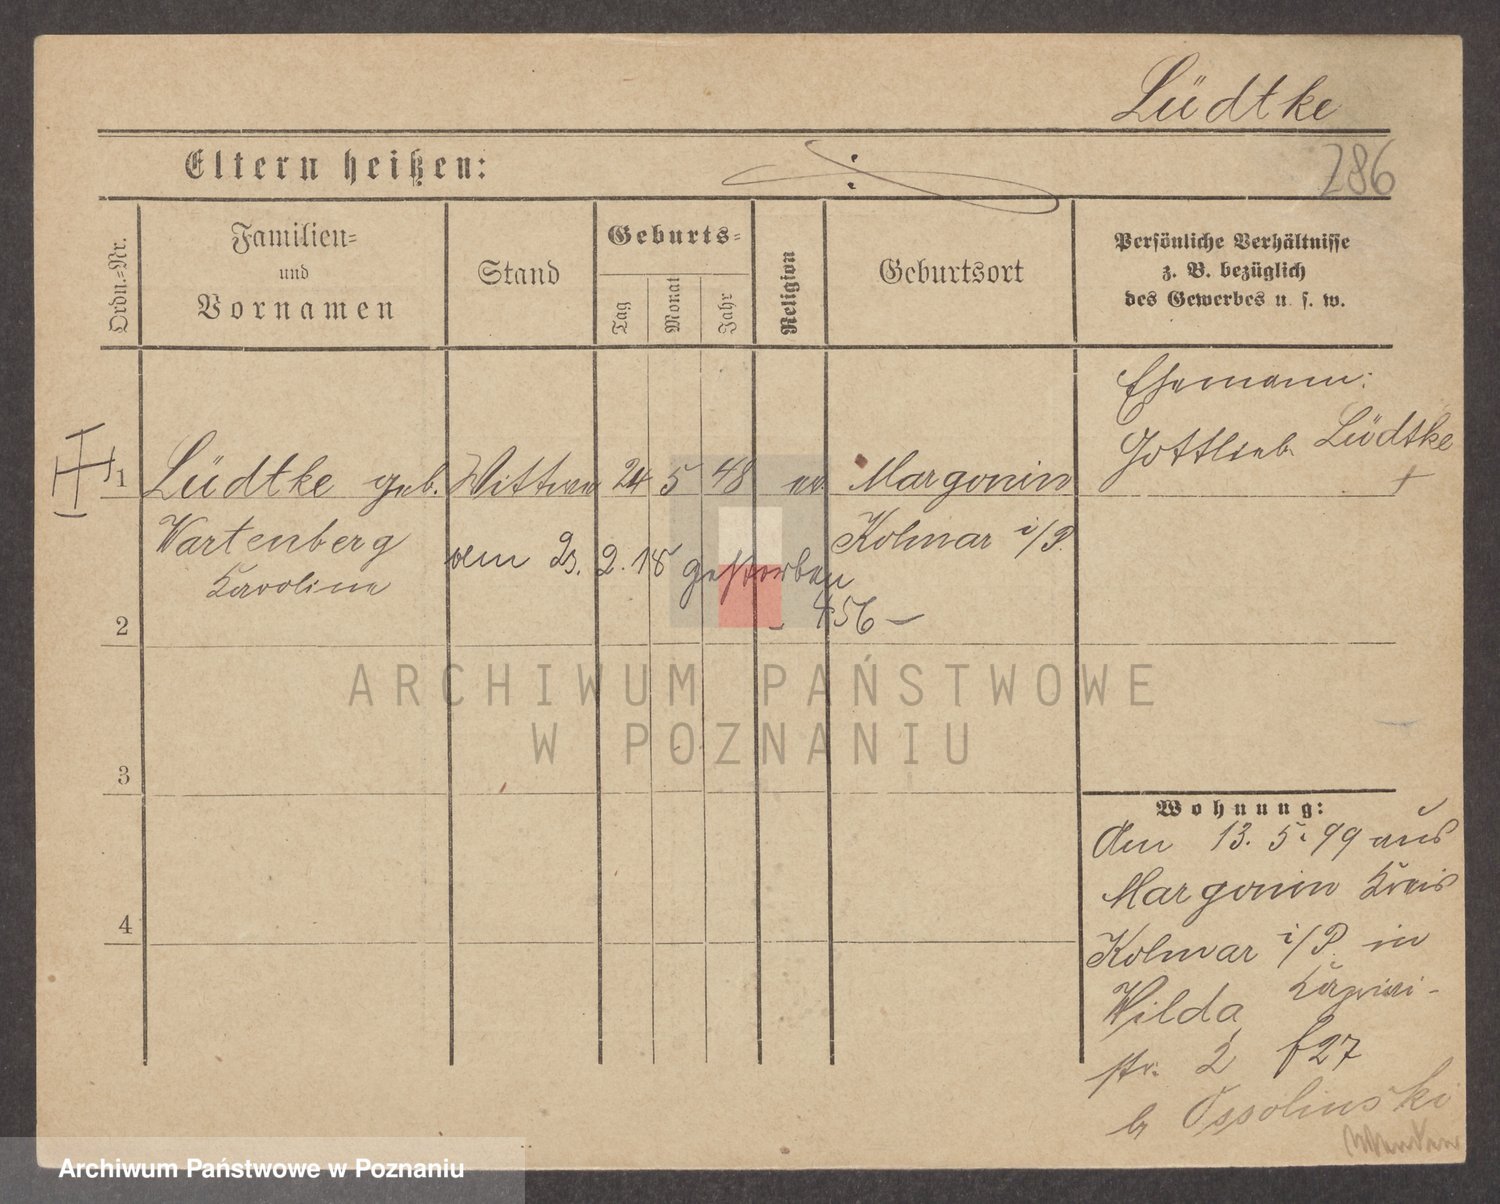 Lüdtke
Eltern heißen:
286
Ordn.-Nr.
Familien-
und
Vornamen
Stand
Geburts-
Tag
Monat
Jahr
Religion
Geburtsort
Persönliche Verhältnisse
z. B. bezüglich
des Gewerbes u. s. w.
Ehemann:
Gottlieb Lüdtke
†
1 Lüdtke geb. Wittwe 24 5 48 ev. Margonin
Wartenberg Kolmar i/P.
Karoline
den 23. 2. 18 gestorben
- 456 -
2
3
4
ARCHIWUM PAŃSTWOWE
W POZNANIU
Wohnung:
Am 13. 5. 99 aus
Margonin Kreis
Kolmar i/P. in
Wilda
str. 2 f27
b Ossolinski
Archiwum Państwowe w Poznaniu